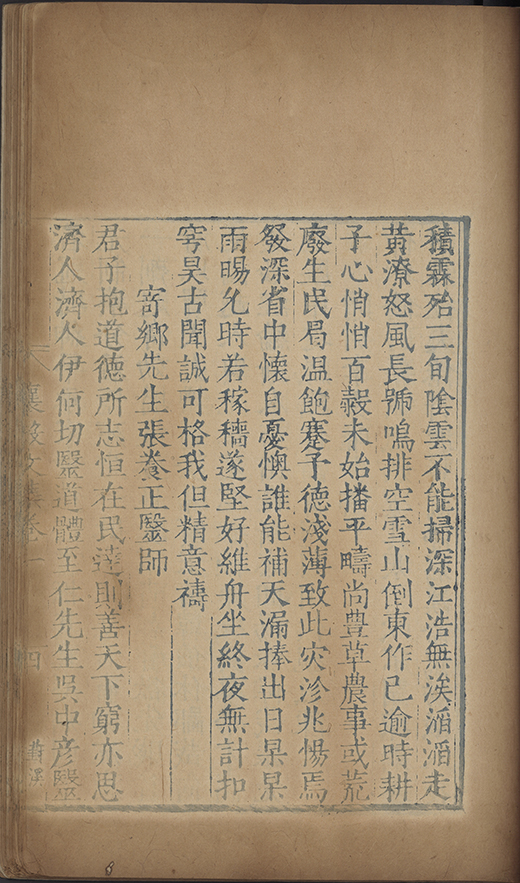 積霖殆三旬隂雲不能掃深江浩無涘滔滔走
黃潦怒風長號鳴排空雪山倒東作已逾時耕
子心悄悄百穀未始播平疇尚豊草農事或荒
廢生民曷温飽蹇予德淺薄致此灾沴兆惕焉
發深省中懷自憂懊誰能補天漏捧出日杲杲
雨暘允時若稼穡遂堅好維舟坐終夜無計扣
穹昊古聞誠可格我但精意禱
寄鄉先生張養正醫師
君子抱道德所志恒在民達則善天下窮亦思
濟人濟人伊何切醫道體至仁先生吳中彥醫
襄毅文集卷一 四